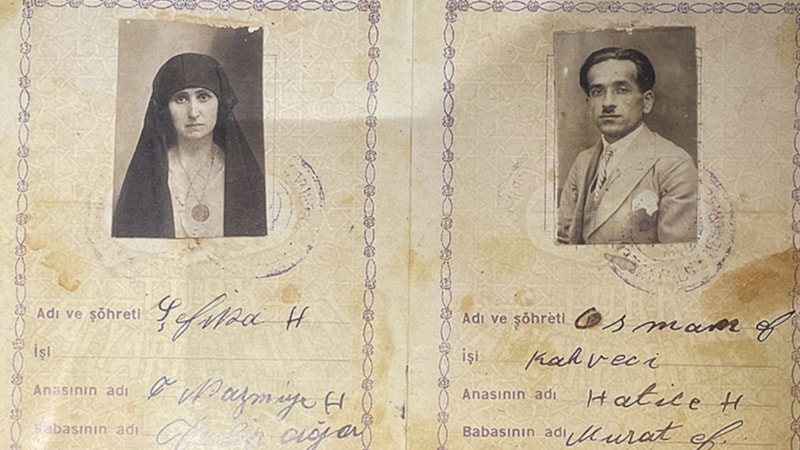 Adı ve şöhreti Şefika H
İşi
Anasının adı Nazmiye H
Babasının adı ağa
Adı ve şöhreti Osman ef
İşi Kahveci
Anasının adı Hatice H
Babasının adı Murat ef.